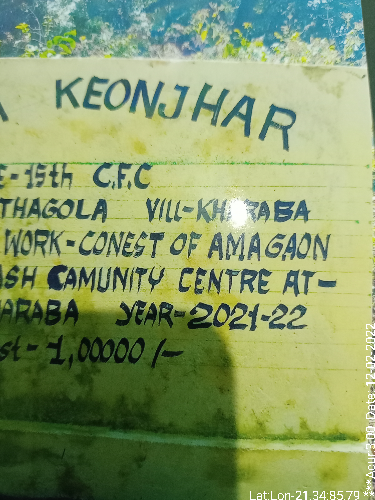 KEONJHAR
E-15th C.F.C
THAGOLA VILL-KHARABA
WORK-CONEST OF AMAGAON
ASH CAMUNITY CENTRE AT-
ARABA YEAR-2021-22
st-1,00000/-
Lat:Lon-21.34:85.79
***Acur:3.09 Date:12-02-2022